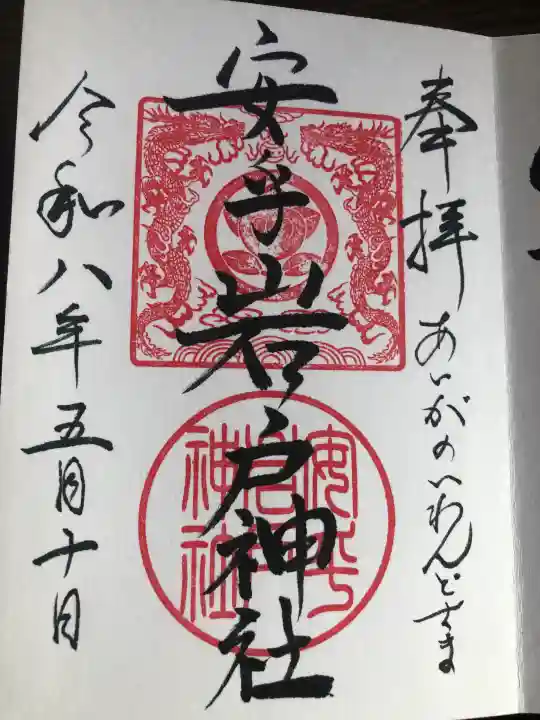 奉拝 あいがのいわんどさま
安乎岩戸神社
令和八年五月十日
安乎
岩戸
神社